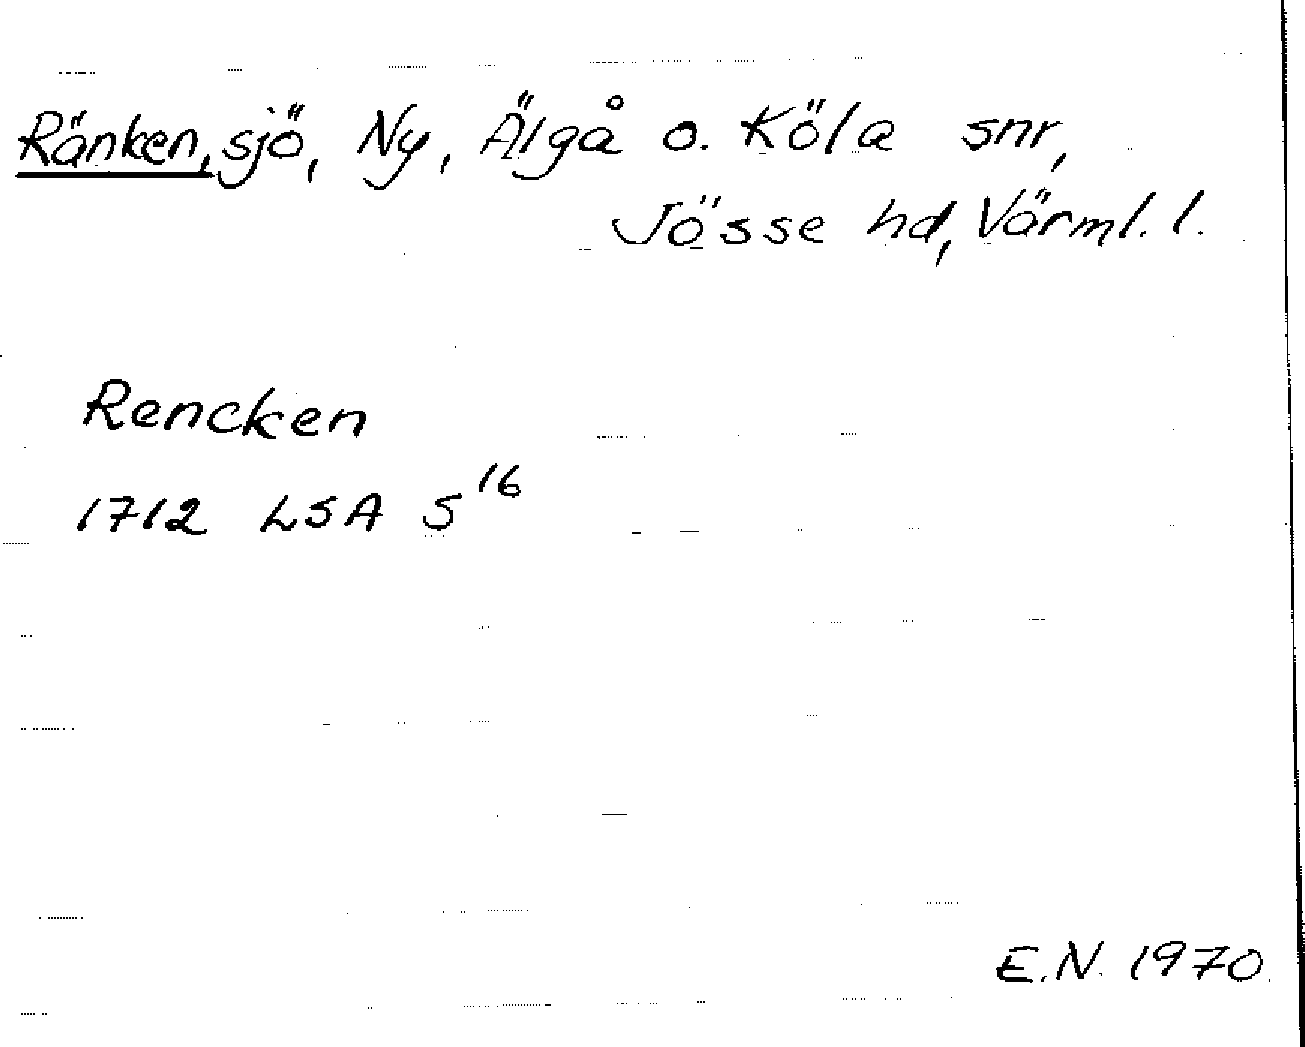 Ränken, sjö, Ny, Älgå o. Köla snr,
Jösse hd, Värml. l.
Rencken
1712 LSA S 16
E.N. 1970.